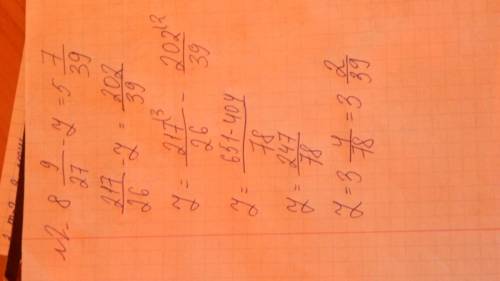 8 9/27 - y = 5 7/39
217/26 - y = 202/39
y = 217\3/26 - 202\2/39
y = 651-404/78
y = 247/78
y = 3 4/78 = 3 2/39